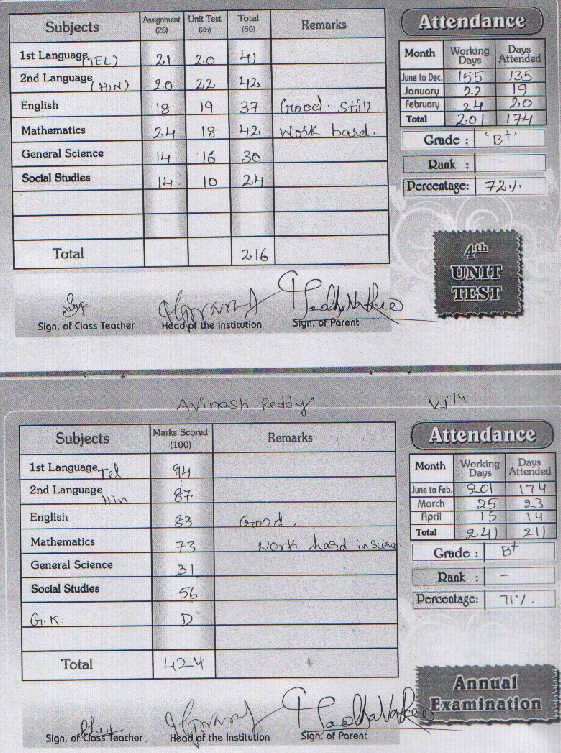 Subjects Assignment (25) Unit Test (25) Total (50) Remarks
1st Language (TEL) 21 20 41
2nd Language (HIN) 20 22 42
English 18 19 37 Good. Still
Mathematics 24 18 42 work hard.
General Science 14 16 30
Social Studies 14 10 24
Total 216
Sign. of Class Teacher Head of the Institution Sign. of Parent
Attendance
Month Working Days Days Attended
June to Dec. 155 135
January 22 19
February 24 20
Total 201 174
Grade : 'B+'
Rank :
Percentage: 72%
4th
UNIT
TEST
Avinash Reddy
Subjects Marks Scored (100) Remarks
1st Language Tel 94
2nd Language Hin 87
English 83 Good.
Mathematics 73 work hard in
General Science 31
Social Studies 56
G.K D
Total 424
Sign. of Class Teacher Head of the Institution Sign. of Parent
Attendance
Month Working Days Days Attended
June to Feb. 201 174
March 25 23
April 15 14
Total 241 211
Grade : B+
Rank : -
Percentage: 71%
Annual
Examination